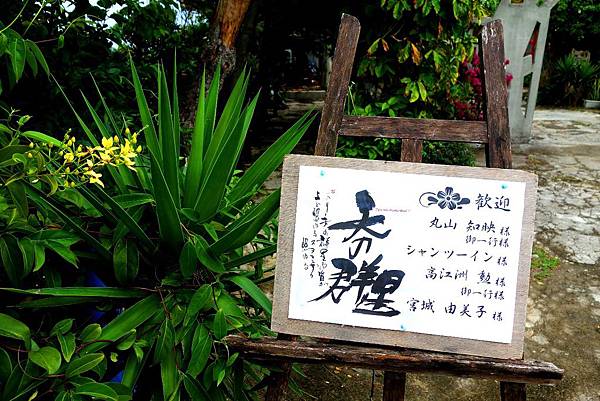 歓迎
丸山 知映様
御一行様
シャンツーイン様
高江洲 勲様
御一行様
宮城 由美子様
天の
群星